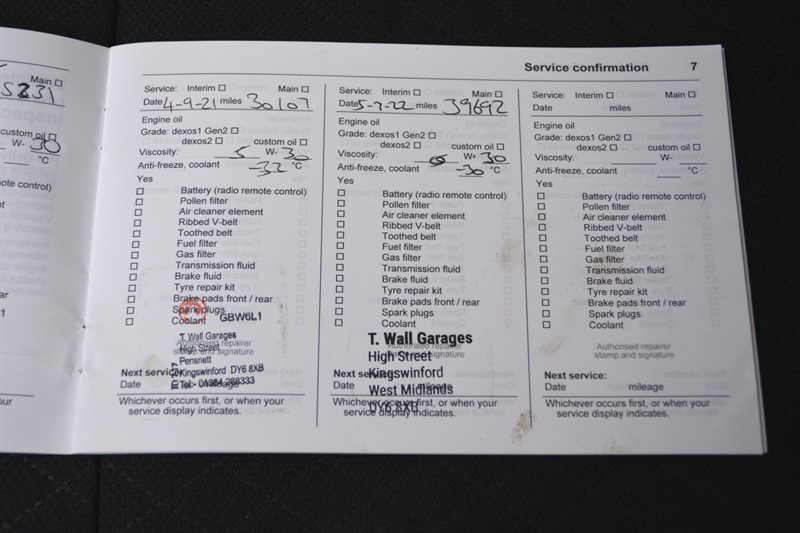 Service confirmation 7
Main
custom oil
W- 30
°C
ote control)
Service: Interim Main
Date 4-9-21 miles 30107
Engine oil
Grade: dexos1 Gen2
dexos2 custom oil
Viscosity: 5 W- 30
Anti-freeze, coolant -32 °C
Yes
Battery (radio remote control)
Pollen filter
Air cleaner element
Ribbed V-belt
Toothed belt
Fuel filter
Gas filter
Transmission fluid
Brake fluid
Tyre repair kit
Brake pads front / rear
Spark plugs
Coolant
GBW6L1
T. Wall Garages
High Street
Pensnett
Kingswinford DY6 8XB
Authorised repairer
stamp and signature
Next service:
Date mileage
Whichever occurs first, or when your
service display indicates.
Service: Interim Main
Date 5-7-22 miles 39692
Engine oil
Grade: dexos1 Gen2
dexos2 custom oil
Viscosity: W- 30
Anti-freeze, coolant -30 °C
Yes
Battery (radio remote control)
Pollen filter
Air cleaner element
Ribbed V-belt
Toothed belt
Fuel filter
Gas filter
Transmission fluid
Brake fluid
Tyre repair kit
Brake pads front / rear
Spark plugs
Coolant
T. Wall Garages
High Street
Kingswinford
West Midlands
DY6 8XB
Authorised repairer
stamp and signature
Next service:
Date mileage
Whichever occurs first, or when your
service display indicates.
Service: Interim Main
Date miles
Engine oil
Grade: dexos1 Gen2
dexos2 custom oil
Viscosity: W-
Anti-freeze, coolant °C
Yes
Battery (radio remote control)
Pollen filter
Air cleaner element
Ribbed V-belt
Toothed belt
Fuel filter
Gas filter
Transmission fluid
Brake fluid
Tyre repair kit
Brake pads front / rear
Spark plugs
Coolant
Authorised repairer
stamp and signature
Next service:
Date mileage
Whichever occurs first, or when your
service display indicates.